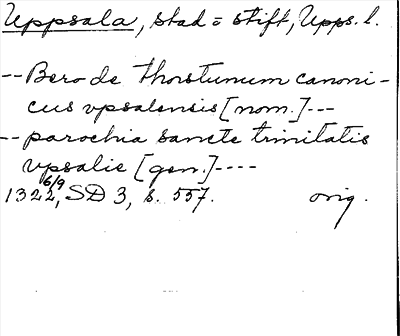 Uppsala, stad = stift, Upps. l.
-- Bero de Thorstunum canoni-
cus vpsalensis [nom.] ---
-- parochia sancte trinitatis
vpsalie [gen.] ----
1322 6/9, SD 3, s. 557. orig.